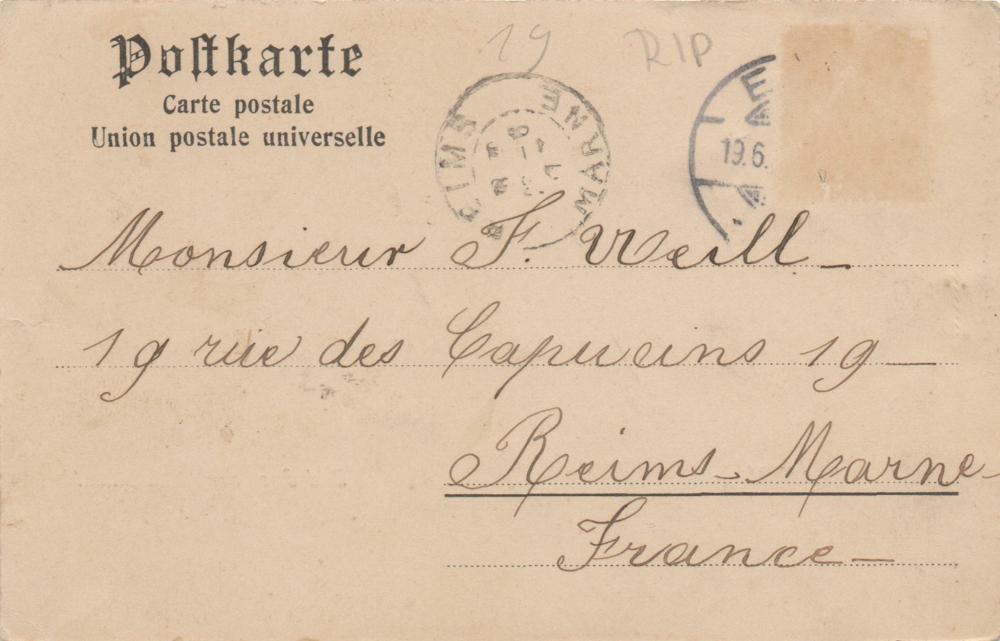 19 RIP
Postkarte
Carte postale
Union postale universelle
REIMS MARNE
19.6.
Monsieur F. Weill
19 rue des Capucins 19
Reims - Marne
France